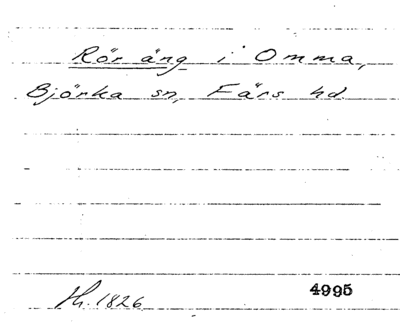 Rör äng i Omma,
Björka sn, Färs hd
H. 1826
4995